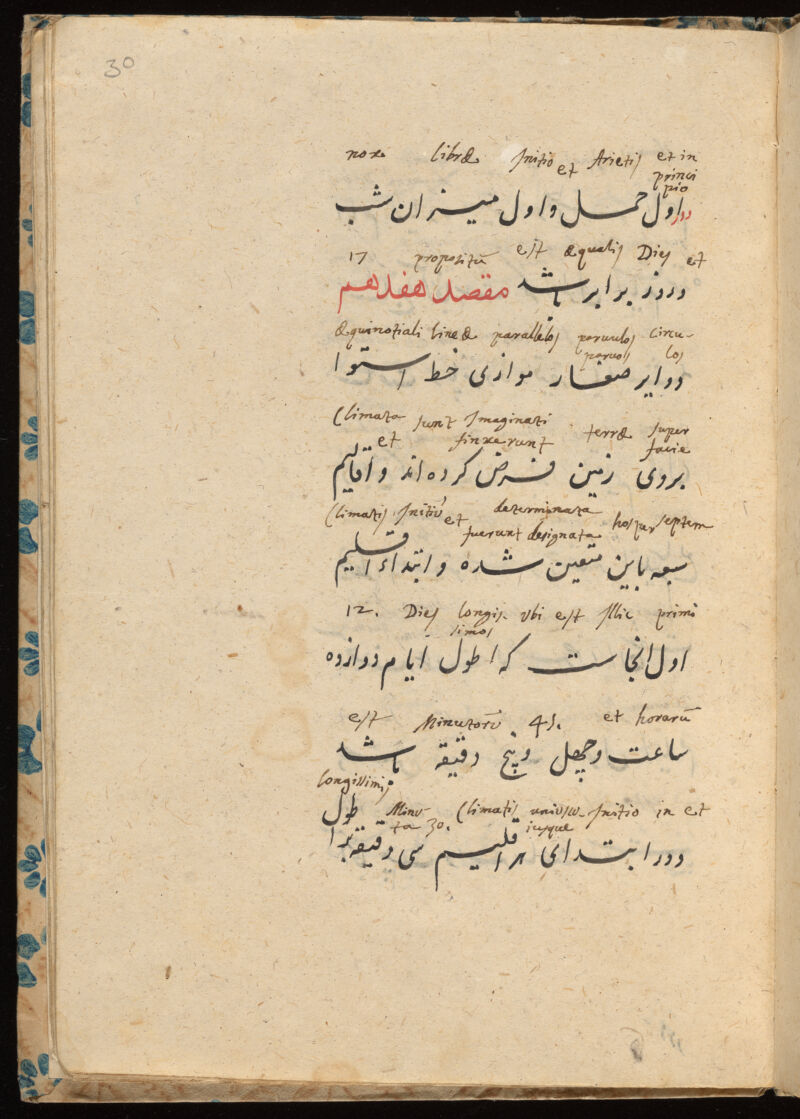 30
nox libræ Initio et Arietis et in
princi
pio
در اول حمل و اول میزان شب
17 propositū est æqualis Dies et
وروز برابر باشد مقصد هفدهم
æquinotiali lineæ parallelos paruulos circu-
paruos los
دوایر صغار موازی خط استوا
Climata sunt Imaginati terræ super
et finxerunt facie
بروی زمین فرض کرده اند و اقالیم
Climatis Initiū et determinata hosque septem
fuerunt designata
سبعه باین متعین شده و ابتداء اقلیم
12. Dies longis- vbi est Illic primi
simos
اول انجاست که اطول ایام دوازده
est Minutorū 45. et horarū
ساعت وچهل وپنج دقیقه باشد
longissimis
Minu- Climatis uniuscu- Initio in et
طول
ta 30. iusque
ودر ابتدای هر اقلیم سی دقیقه برا